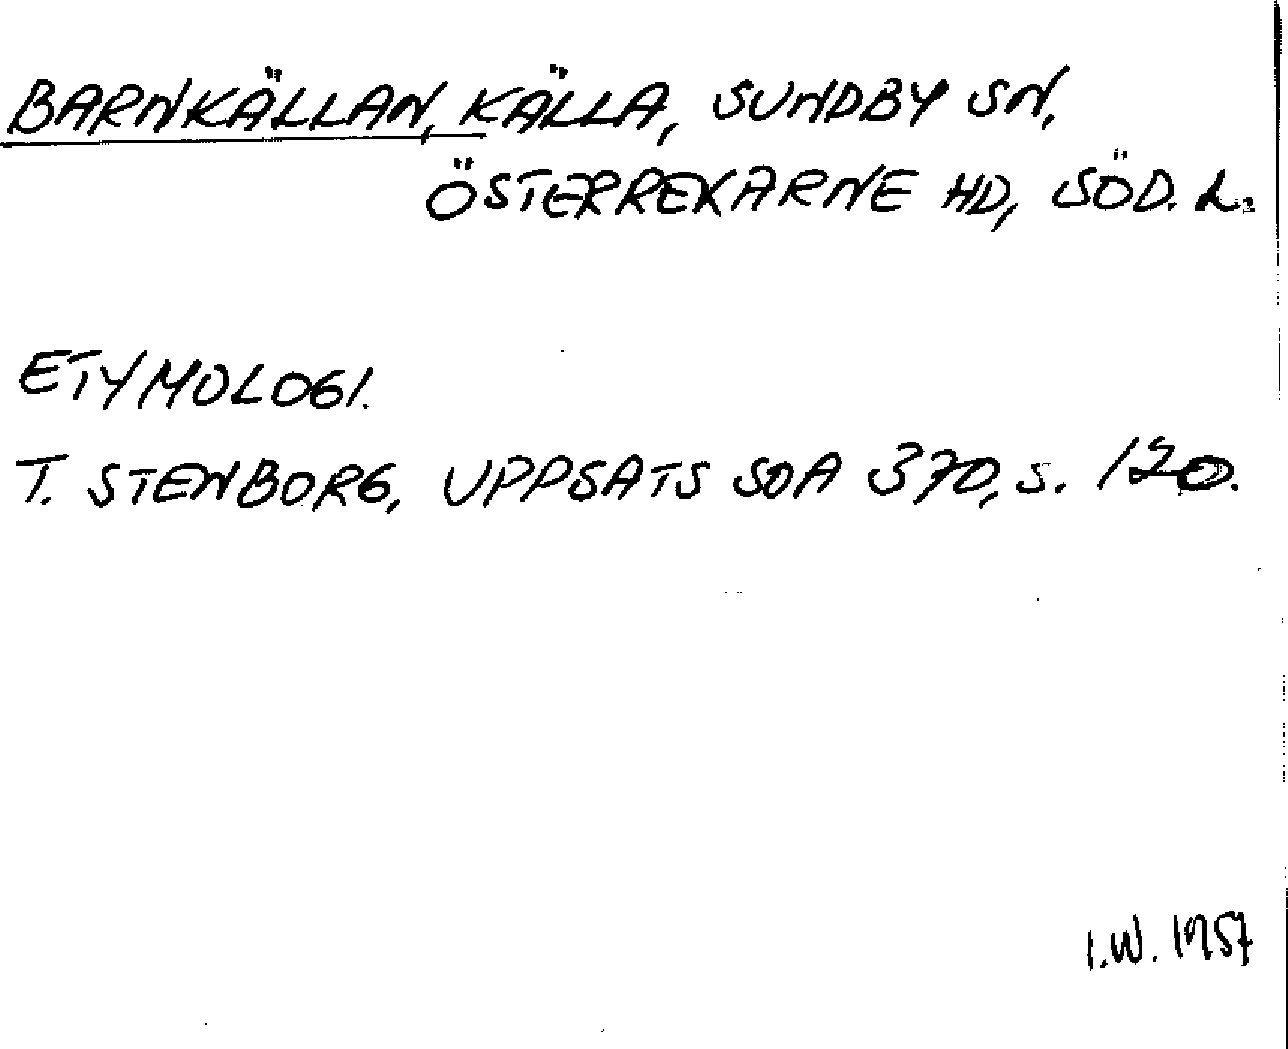 BARNKÄLLAN, KÄLLA, SUNDBY SN,
ÖSTERREKARNE HD, SÖD. L.
ETYMOLOGI.
T. STENBORG, UPPSATS SOA 370, S. 120.
I.W. 1957